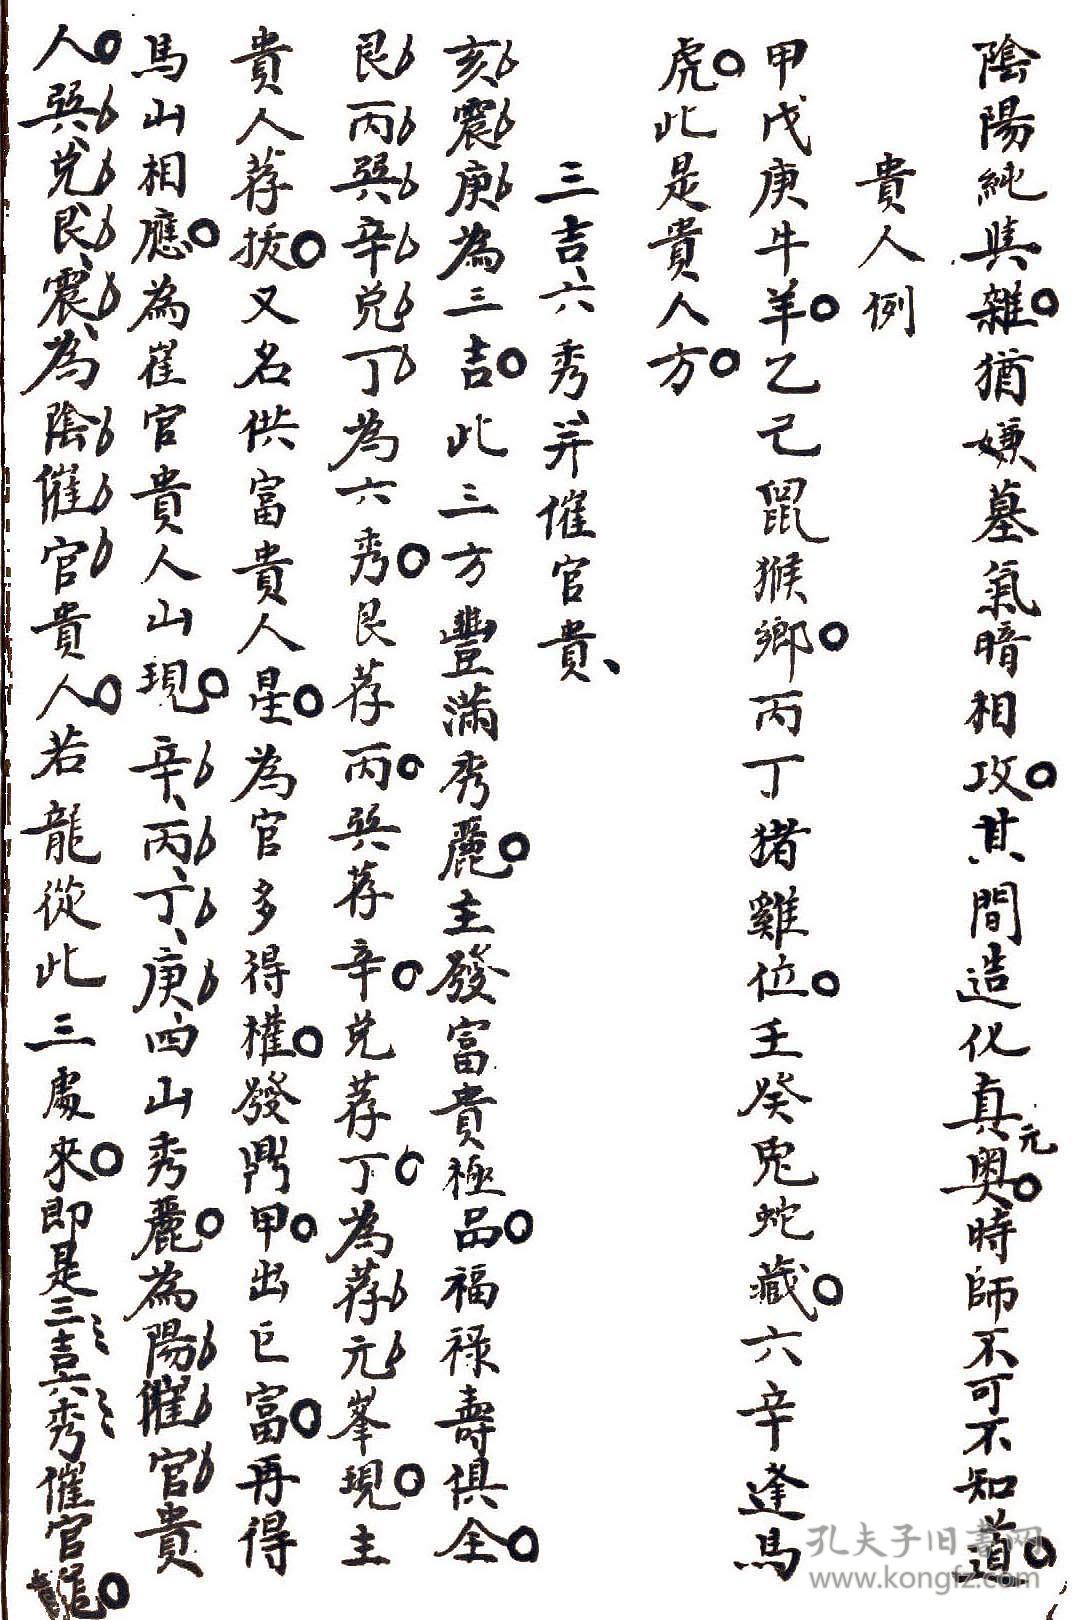 陰陽純與雜猶嫌墓氣暗相攻其間造化真元奥時師不可不知道
貴人例
甲戊庚牛羊乙己鼠猴鄉丙丁猪雞位壬癸兎蛇藏六辛逢馬
虎此是貴人方
三吉六秀并催官貴
亥震庚為三吉此三方豐滿秀麗主發富貴極品福禄壽俱全
艮丙巽辛兌丁為六秀艮荐丙巽荐辛兌荐丁為荐元峯現主
貴人荐拔又名供富貴人星為官多得權發門甲出巨富再得
馬山相應為崔官貴人山現辛丙丁庚四山秀麗為陽催官貴
人巽兌艮震為陰催官貴人若龍從此三處來即是三吉六秀催官龍
孔夫子旧书网
www.kongfz.com